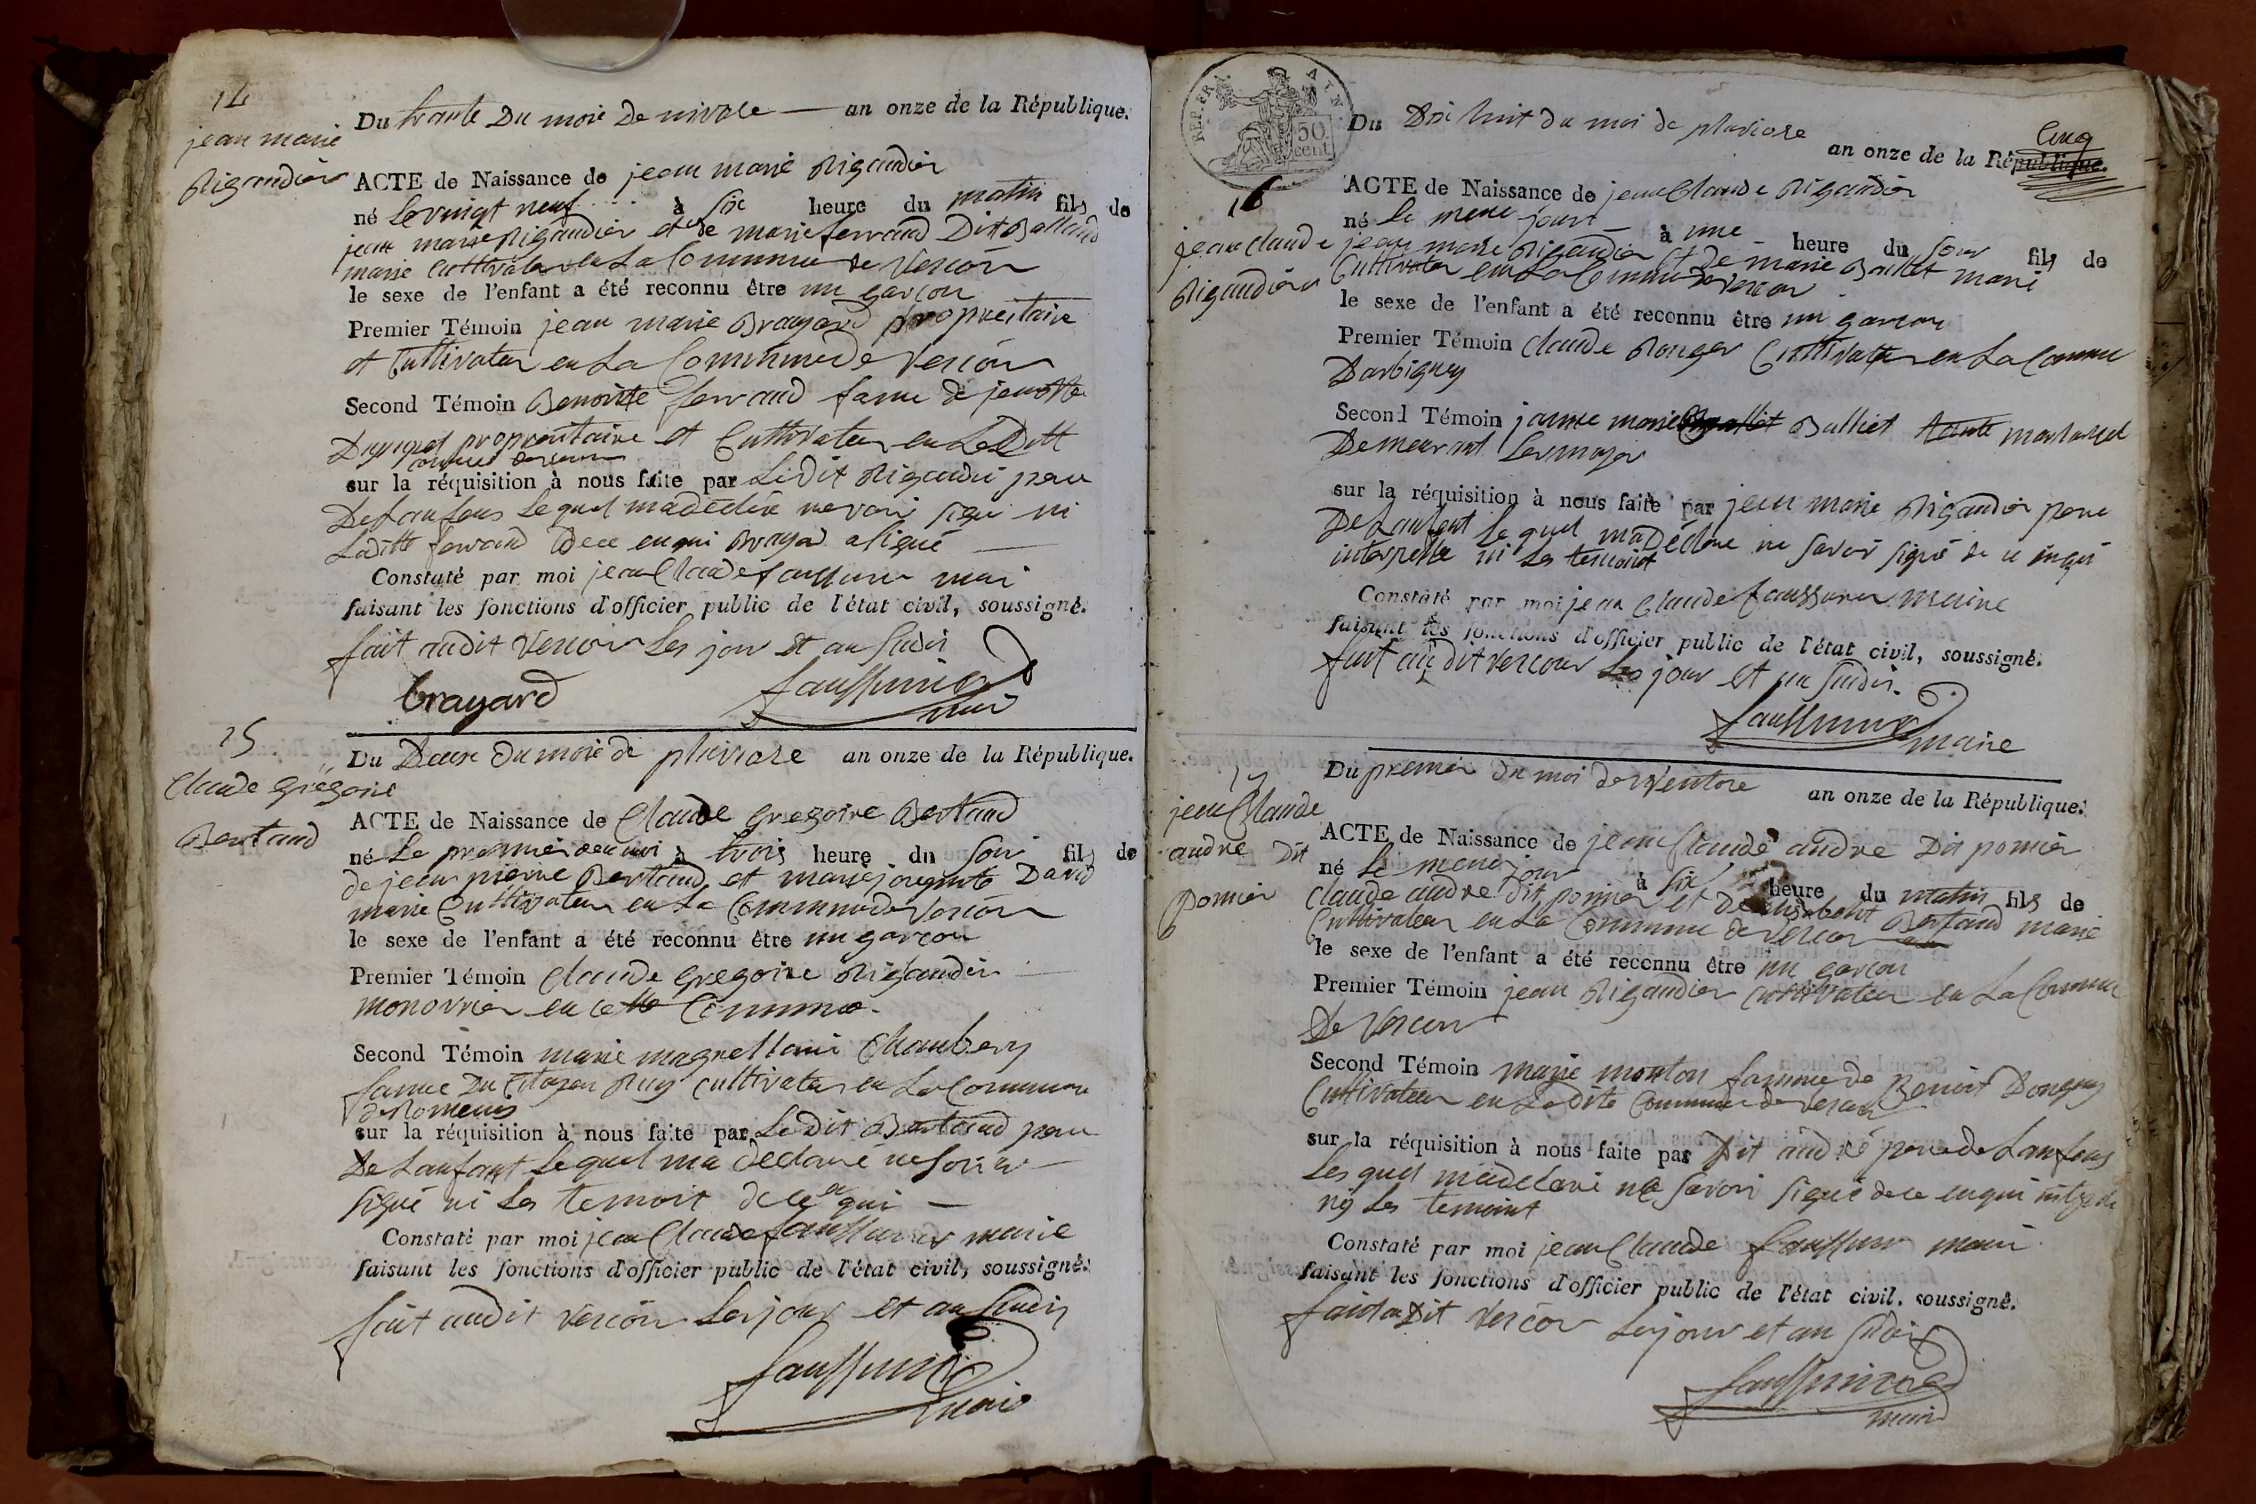 14
jean marie
Rigaudier
Du trante Du mois De nivose — an onze de la République.
ACTE de Naissance de jean marie Rigaudier
né Le vingt neuf à six heure du matin fils de
jean marie Rigaudier et de marie ferrand Dit Balland
marié Cultivateur en La Commune de Vescour
le sexe de l'enfant a été reconnu être un garcon
Premier Témoin jean marie Brayard propriettaire
et Cultivateur en La Commune de Vescour
Second Témoin Benoitte ferrand fame de
propriettaire et Cultivateur en Laditt
commune
sur la réquisition à nous faite par Ledit Rigaudier pere
De Lanfans Lequel ma déclaré ne voir signé ni
Laditte ferrand de ce enqui Brayard a signé —
Constaté par moi jean Claude faussurier mair
faisant les fonctions d'officier public de l'état civil, soussigné.
fait audit Vescour Les jour et an susdis
brayard faussurier
mair
15
Claude Grégoire
Bertand
Du Deuxe Du mois de pluviose an onze de la République.
ACTE de Naissance de Claude Gregoire Bertand
né Le premier à trois heure du soir fils de
de jean pierre Bertand et marie David
marié Cultivateur en La Commune de Vescour
le sexe de l'enfant a été reconnu être un garcon
Premier Témoin Claude Gregoire Rigaudier
monovrier en cette Commune
Second Témoin marie Chambery
famme Du Citoyen Ruy Cultivateur en La Commune
de Romenay
sur la réquisition à nous faite par Ledit Bertand pere
De Lanfant Lequel ma déclaré ne savoir
signé ni Les temoit de ce en qui —
Constaté par moi jean Claude faussurier maire
faisant les fonctions d'officier public de l'état civil, soussigné.
fait audit Vescour Les jour et an susdis
faussurier
maire
REP. FRA.
50
cent
AIN
Cinq
16
jean Claude
Rigaudier
Du Dix huit du moi de pluviose
an onze de la République.
ACTE de Naissance de jean Claude Rigaudier
né Le meme jour à une heure du soir fils de
jean marie Rigaudier et De marie Balliet marié
Cultivateur en La Commune de Vescour
le sexe de l'enfant a été reconnu être un garcon
Premier Témoin Claude Ronger Cultivateur en La Commune
Darbigny
Second Témoin janne marie Balliet
Demeurant Sermoyer
sur la réquisition à nous faite par jean marie Rigaudier pere
De Lanfant Lequel ma Déclaré ne savoir signé de ce enqui
interpellé ni Les temoint
Constaté par moi jean Claude faussurier maire
faisant les fonctions d'officier public de l'état civil, soussigné.
fait audit Vescour Les jour et an susdis.
faussurier
maire
17
jean Claude
andre Dit
pomier
Du premier du moi de Ventose
an onze de la République.
ACTE de Naissance de jean Claude andre Dit pomier
né Le meme jour à six heure du matin fils de
Claude andre dit pomier et De Bertand marié
Cultivateur en La Commune de Vescour
le sexe de l'enfant a été reconnu être un garcon
Premier Témoin jean Rigaudier Cultivateur en La Commune
De Vescour
Second Témoin marie monton famme de Benoit Dongey
Cultivateur en Ladite Commune de Vescour
sur la réquisition à nous faite par Dit andre pere de Lanfans
Lesquel ma declaré ne savoir signé de ce enqui
ny Les temoint
Constaté par moi jean Claude faussurier mair
faisant les fonctions d'officier public de l'état civil, soussigné.
fait audit Vescour Les jour et an susdis
faussurier
mair